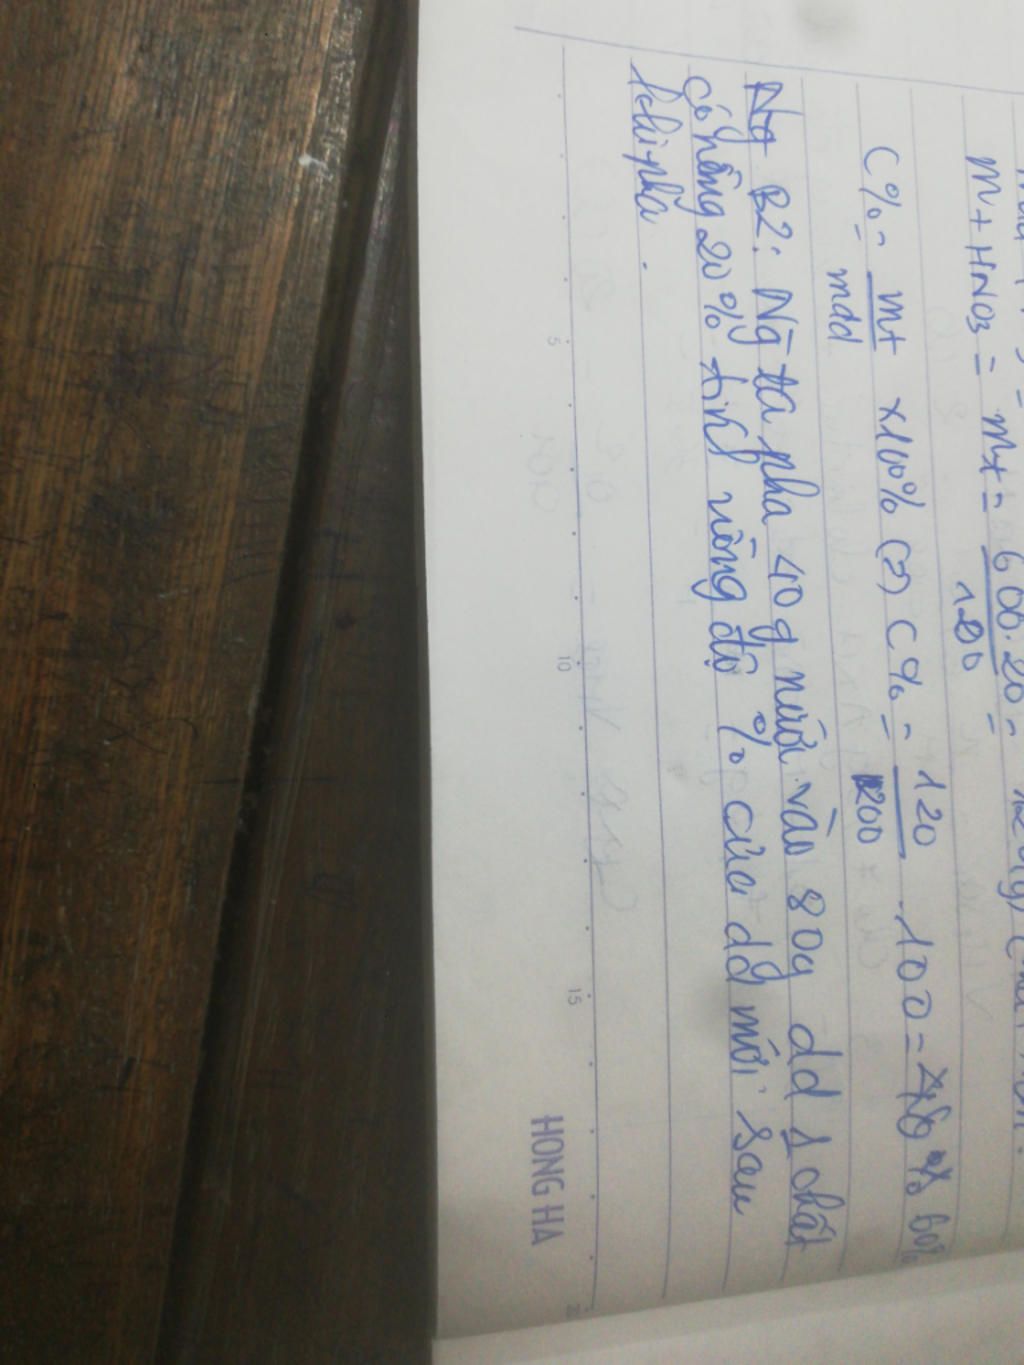 m+HNO3 = mt = 600.20 =
100
C% = mt/mdd x100% (=) C% = 120/200 .100 = 60%
Ng B2: Ng ta pha 40g nước vào 80g dd 1 chất
có nồng 20% tính nồng độ % của dd mới sau
khi pha.
5 10 15
HONG HA